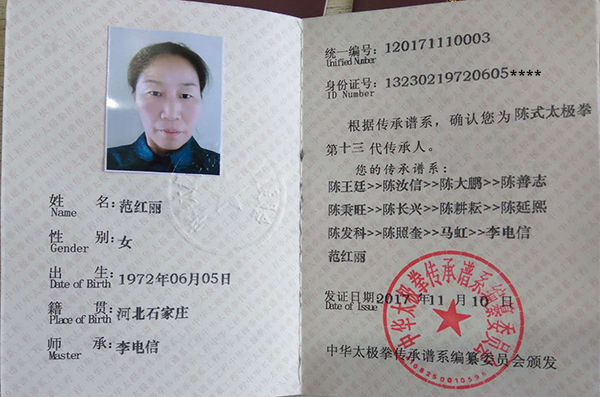 姓 名: 范红丽
Name
性 别: 女
Gender
出 生: 1972年06月05日
Date of Birth
籍 贯: 河北石家庄
Place of Birth
师 承: 李电信
Master
统一编号: 120171110003
Unified Number
身份证号: 13230219720605****
ID Number
根据传承谱系,确认您为陈式太极拳
第十三代传承人。
您的传承谱系:
陈王廷>>陈汝信>>陈大鹏>>陈善志
陈秉旺>>陈长兴>>陈耕耘>>陈延熙
陈发科>>陈照奎>>马虹>>李电信
范红丽
发证日期 2017 年 11 月 10 日
Date of Issue
中华太极拳传承谱系编纂委员会
中华太极拳传承谱系编纂委员会颁发